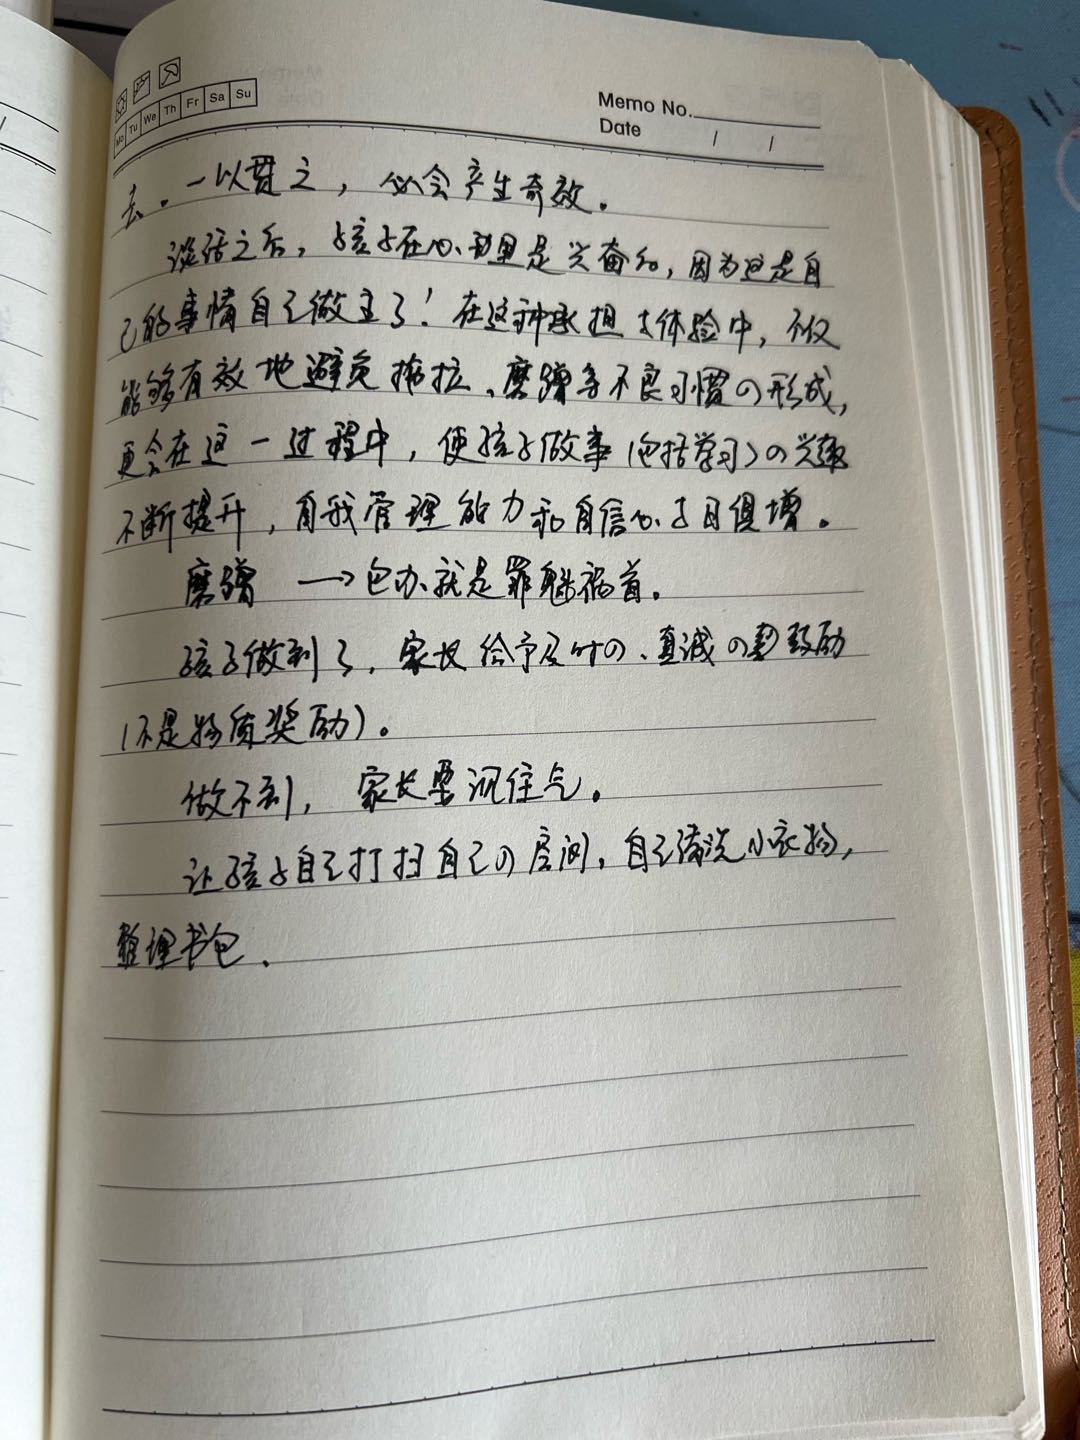 Mo Tu We Th Fr Sa Su
Memo No.
Date / /
去。一以贯之，必会产生奇效。
谈话之后，孩子在心里是兴奋的，因为这是自
己的事情自己做主了！在这种承担大体验中，不仅
能够有效地避免拖拉、磨蹭等不良习惯の形成，
更会在这一过程中，使孩子做事（包括学习）の兴趣
不断提升，自我管理能力和自信心与日俱增。
磨蹭 → 包办就是罪魁祸首。
孩子做到了，家长给予及时の、真诚の鼓励
（不是物质奖励）。
做不到，家长要沉住气。
让孩子自己打扫自己の房间，自己清洗小衣物，
整理书包、